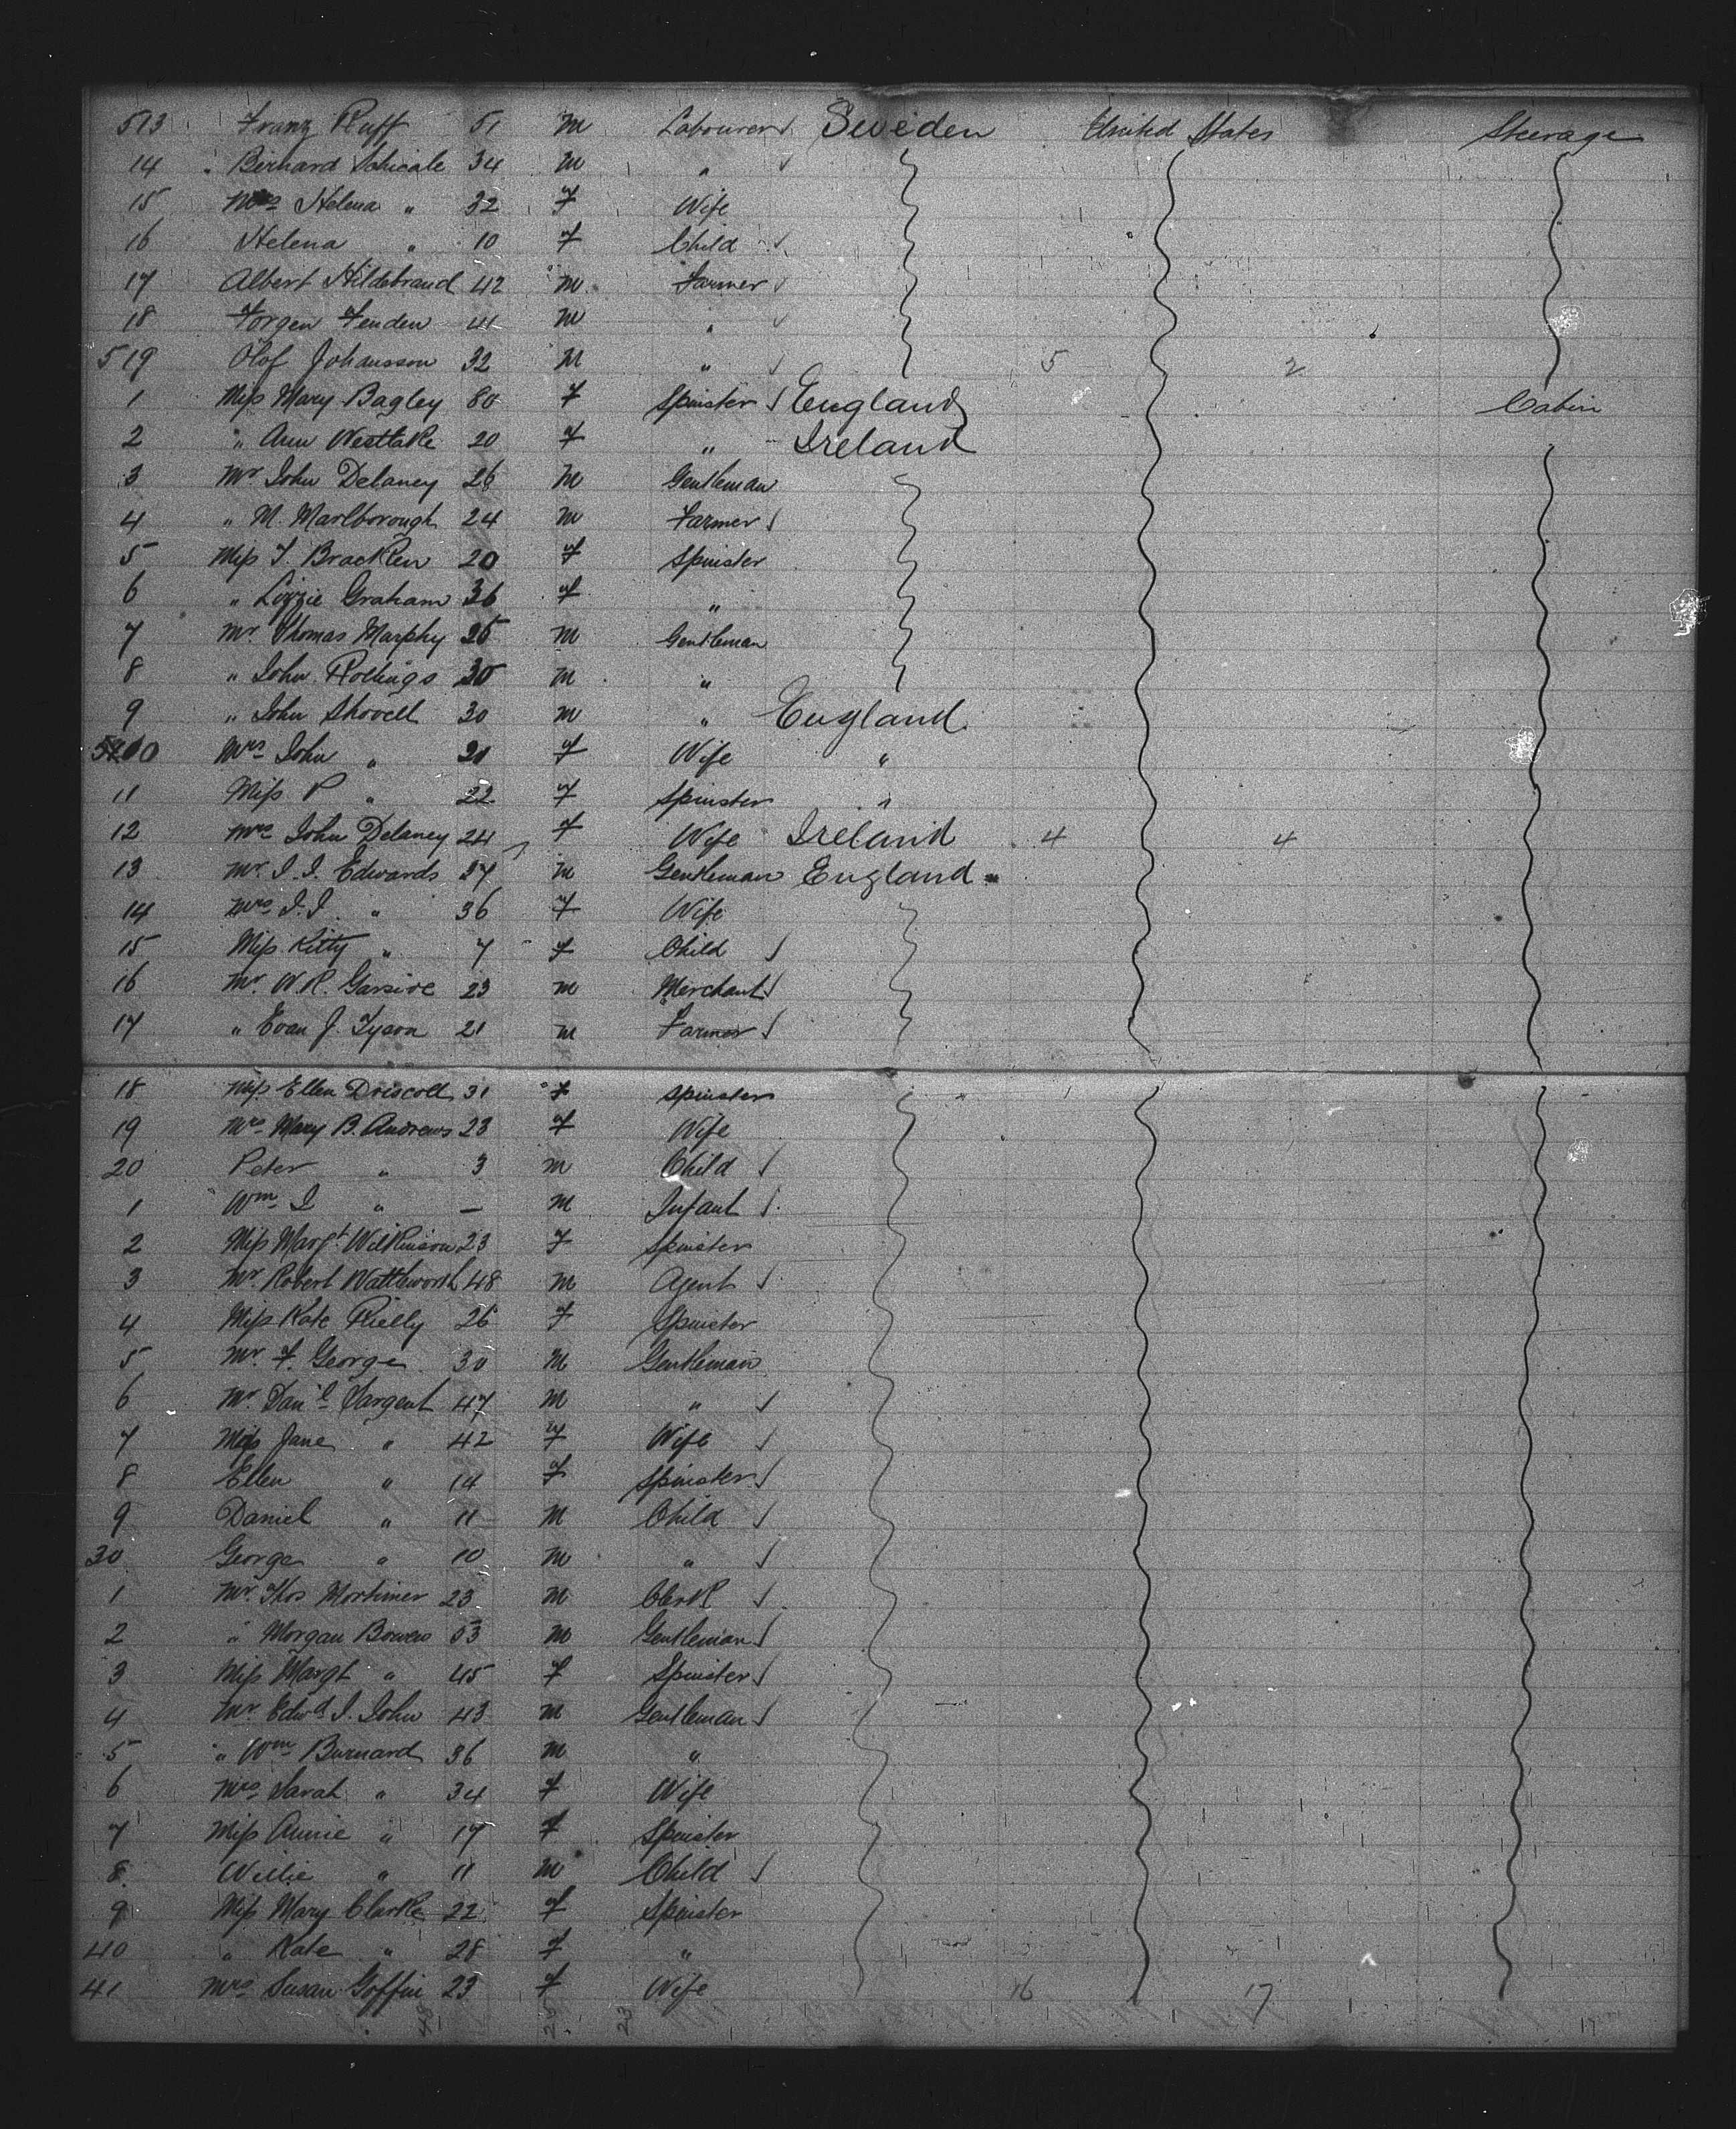 513 Franz Ruff 51 M Labourer Sweden United States Steerage
14 Bernard Schicale 34 M "
15 Mrs Helena " 32 F Wife
16 Helena " 10 F Child
17 Albert Hildebrand 42 M Farmer
18 Jorgen Fenden 41 M "
519 Olof Johansson 32 M " 5 2
1 Miss Mary Bagley 80 F Spinster England Cabin
2 " Ann Westlake 20 F " Ireland
3 Mr John Delaney 26 M Gentleman
4 " M. Marlborough 24 M Farmer
5 Miss T. Bracken 20 F Spinster
6 " Lizzie Graham 36 F "
7 Mr Thomas Murphy 25 M Gentleman
8 " John Rollings 30 M "
9 " John Shovell 30 M " England
10 Mrs John " 21 F Wife "
11 Miss P " 22 F Spinster "
12 Mrs John Delaney 24 F Wife Ireland 4 4
13 Mr I. I. Edwards 37 M Gentleman England
14 Mrs I. I. " 36 F Wife
15 Miss Kitty " 7 F Child
16 Mr. W. R. Garside 23 M Merchant
17 " Evan J. Tyson 21 M Farmer
18 Miss Ellen Driscoll 31 F Spinster
19 Mrs Mary B. Andrews 23 F Wife
20 Peter " 3 M Child
1 Wm I " — M Infant
2 Miss Margt. Wilkinson 23 F Spinster
3 Mr. Robert Wattleworth 48 M Agent
4 Miss Kate Rielly 26 F Spinster
5 Mr. F. George 30 M Gentleman
6 Mr. Danl Sargent 47 M "
7 Mrs Jane " 42 F Wife
8 Ellen " 14 F Spinster
9 Daniel " 11 M Child
30 George " 10 M "
1 Mr. Thos Mortimer 23 M Clerk
2 " Morgan Bowen 53 M Gentleman
3 Miss Margt " 45 F Spinster
4 Mr. Edwd I. John 43 M Gentleman
5 " Wm Burnard 36 M "
6 Mrs Sarah " 34 F Wife
7 Miss Annie " 17 F Spinster
8 Willie " 11 M Child
9 Miss Mary Clarke 22 F Spinster
40 " Kate " 28 F "
41 Mrs Susan Goffin 23 F Wife 16 17